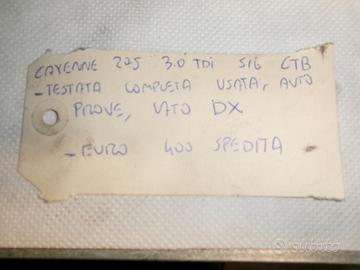 CAYENNE 225 3.0 TDI SIG CTB
- TESTATA COMPLETA USATA, AUTO
PROVE, LATO DX
- EURO 400 SPEDITA
subito